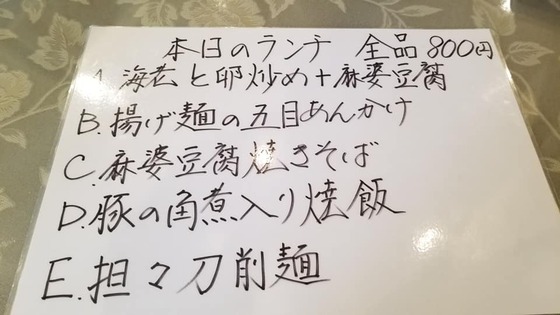 本日のランチ 全品800円
A.海老と卵炒め+麻婆豆腐
B.揚げ麺の五目あんかけ
C.麻婆豆腐焼きそば
D.豚の角煮入り焼飯
E.担々刀削麺